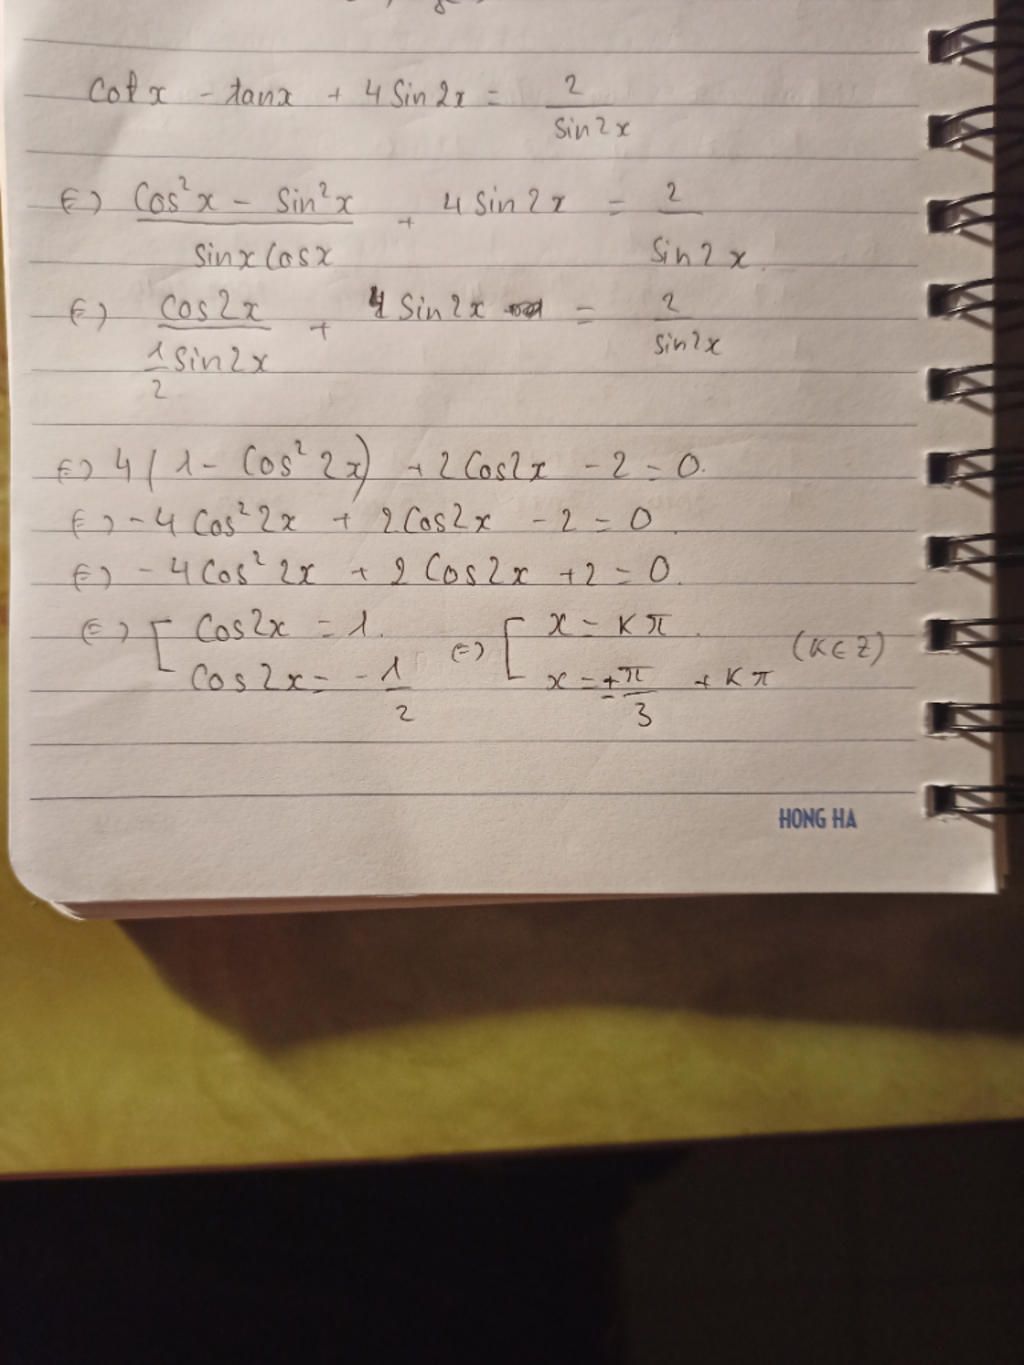 cot x - tanx + 4 Sin 2x = 2/sin2x
⇔ (Cos²x - Sin²x)/(sinx Cosx) + 4 Sin 2x = 2/Sin 2x.
⇔ cos2x/(1/2 Sin2x) + 4 Sin 2x = 2/sin2x
⇔ 4(1 - Cos² 2x) + 2Cos2x - 2 = 0.
⇔ -4 Cos² 2x + 2Cos2x - 2 = 0.
⇔ -4Cos² 2x + 2 Cos2x + 2 = 0.
⇔ [ Cos2x = 1. ⇔ [ x = kπ. (K∈Z)
Cos2x = -1/2 x = ±π/3 + Kπ
HONG HA